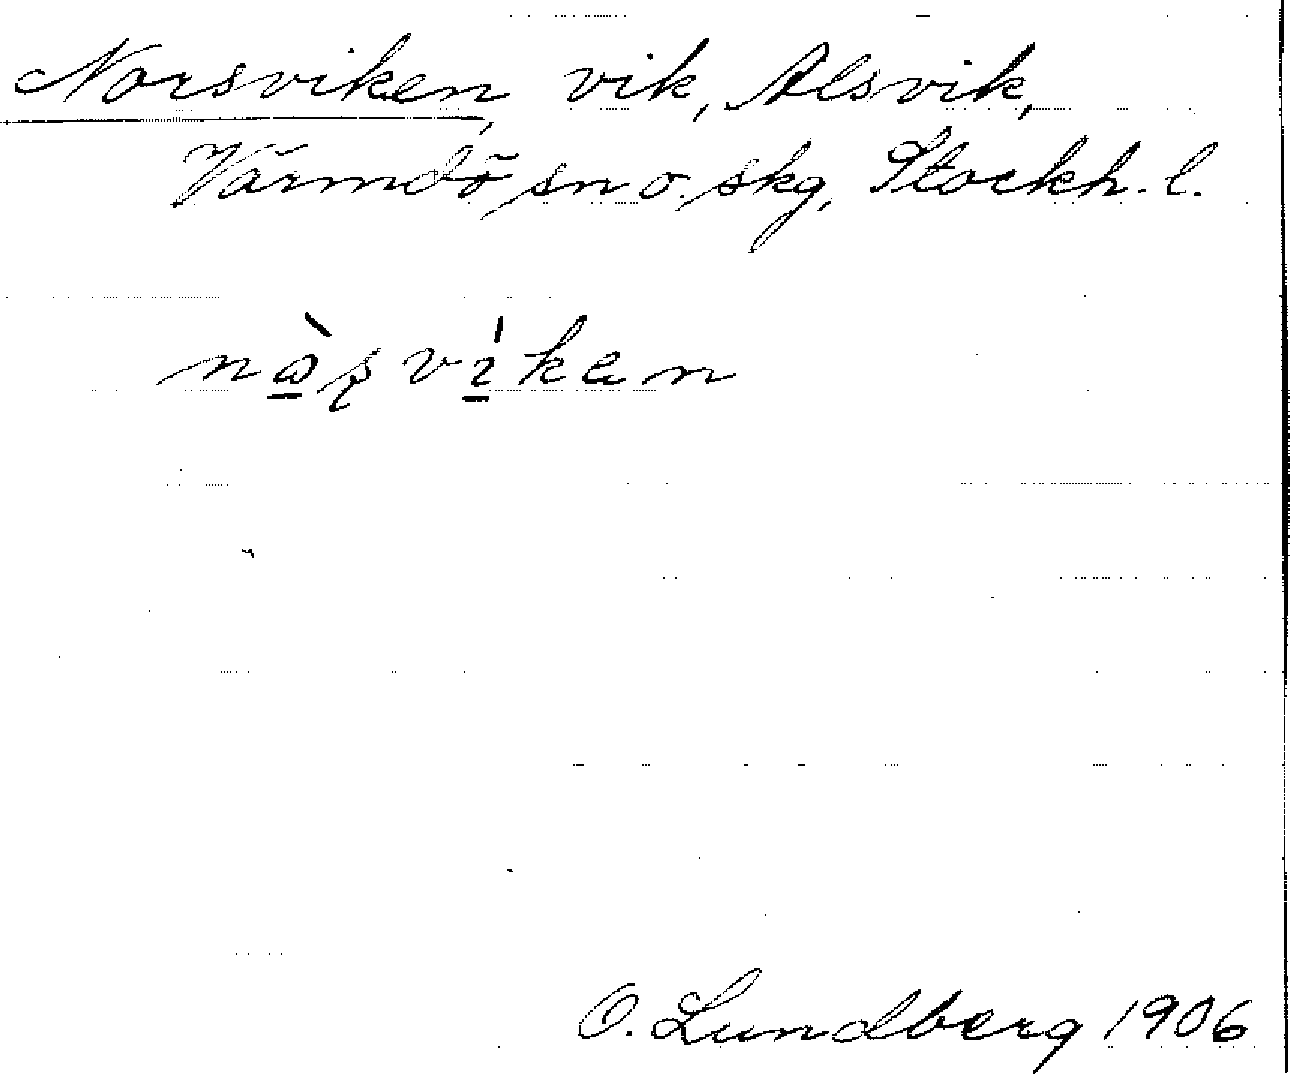 Norsviken, vik, Alsvik,
Värmdö sn o. skg, Stockh. l.
nàʂvi̍ken
O. Lundberg 1906